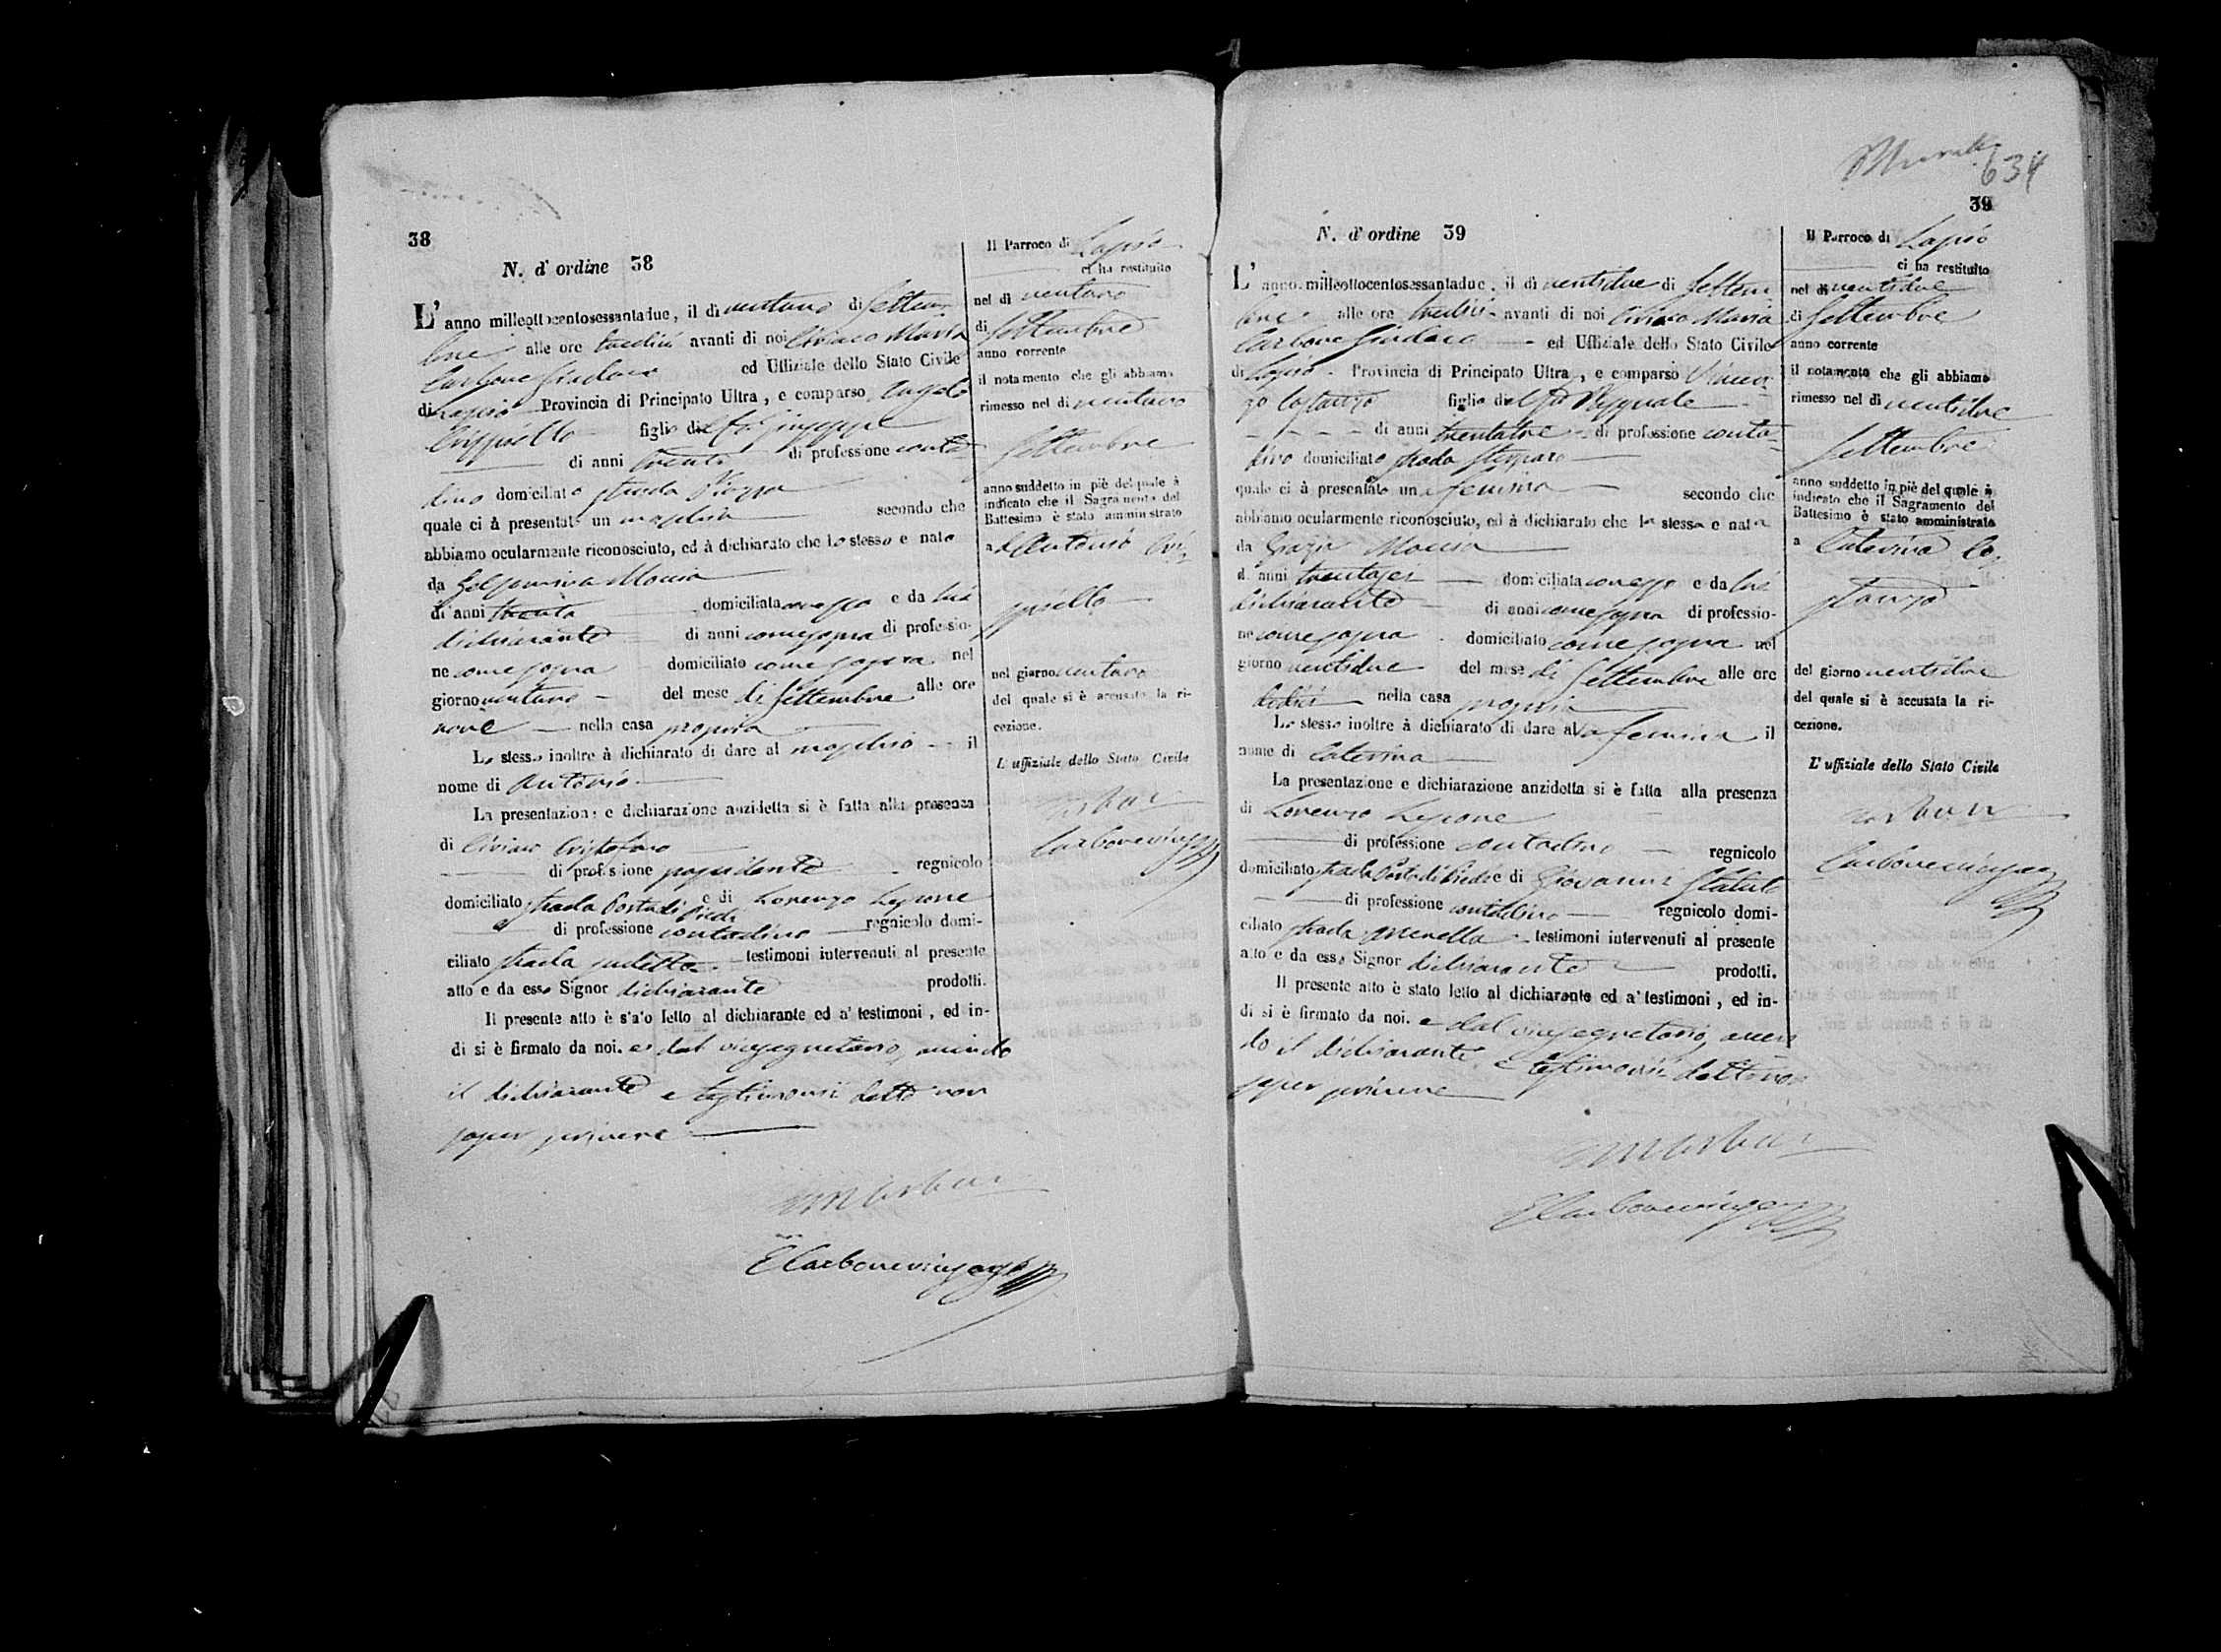 38
N. d' ordine 38
L' anno milleottocentosessantadue, il di ventuno di Settem
bre alle ore tredici avanti di noi Ciriaco Maria
Carbone Sindaco ed Uffiziale dello Stato Civile
di Lapio Provincia di Principato Ultra, e comparso Angelo
figlio del fu Giuseppe
di anni trenta di professione conta
dino domiciliato strada Piazza
quale ci à presentato un maschio secondo che
abbiamo ocularmente riconosciuto, ed à dichiarato che lo stesso e nato
da
di anni trenta domiciliata con esso e da lui
dichiarante di anni come sopra di professio-
ne come sopra domiciliato come sopra nel
giorno ventuno del mese di Settembre alle ore
nove nella casa propria
Lo stesso inoltre à dichiarato di dare al maschio il
nome di Antonio
La presentazione e dichiarazione anzidetta si è fatta alla presenza
di Ciriaco Cristofaro
di professione possidente regnicolo
domiciliato strada Porta di Piedi e di Lorenzo Lepone
di professione contadino regnicolo domi-
ciliato strada suddetta testimoni intervenuti al presente
atto e da esso Signor dichiarante prodotti.
Il presente atto è stato letto al dichiarante ed a' testimoni, ed in-
di si è firmato da noi. e dal vicesegretario, avendo
il dichiarante e testimonii detto non
saper scrivere
Il Parroco di Lapio
ci ha restituito
nel di ventuno
di Settembre
anno corrente
il notamento che gli abbiamo
rimesso nel di ventuno
Settembre
anno suddetto in piè del quale è
indicato che il Sagramento del
Battesimo è stato amministrato
ad Antonio
nel giorno ventuno
del quale si è accusata la ri-
cezione.
L' uffiziale dello Stato Civile
634
39
N. d' ordine 39
L' anno milleottocentosessantadue, il di ventidue di Settem
bre alle ore tredici avanti di noi Ciriaco Maria
Carbone Sindaco ed Uffiziale dello Stato Civile
di Lapio Provincia di Principato Ultra, e comparso Vincen
zo Costanzo figlio del fu Pasquale
di anni trentatre di professione conta
dino domiciliato strada
quale ci à presentato una femina secondo che
abbiamo ocularmente riconosciuto, ed à dichiarato che la stessa e nata
da Grazia
di anni trentasei domiciliata con esso e da lui
dichiarante di anni come sopra di professio-
ne come sopra domiciliato come sopra nel
giorno ventidue del mese di Settembre alle ore
dodici nella casa propria
Lo stesso inoltre à dichiarato di dare alla femina il
nome di Caterina
La presentazione e dichiarazione anzidetta si è fatta alla presenza
di Lorenzo Lepone
di professione contadino regnicolo
domiciliato strada Porta di Piedi e di Giovanni Statuto
di professione contadino regnicolo domi-
ciliato strada testimoni intervenuti al presente
atto e da esso Signor dichiarante prodotti.
Il presente atto è stato letto al dichiarante ed a' testimoni, ed in-
di si è firmato da noi. e dal vicesegretario, aven
do il dichiarante e testimonii detto non
saper scrivere
Il Parroco di Lapio
ci ha restituito
nel di ventidue
di Settembre
anno corrente
il notamento che gli abbiamo
rimesso nel di ventidue
Settembre
anno suddetto in piè del quale è
indicato che il Sagramento del
Battesimo è stato amministrato
a Caterina Co
stanzo
del giorno ventidue
del quale si è accusata la ri-
cezione.
L' uffiziale dello Stato Civile